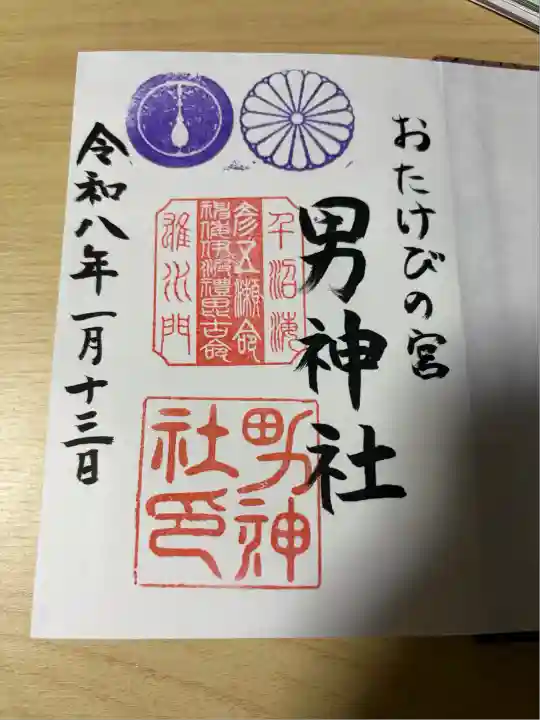 おたけびの宮
男神社
千沼海
彦五瀬命
神倭伊波禮毘古命
雄水門
男神
社印
令和八年一月十三日